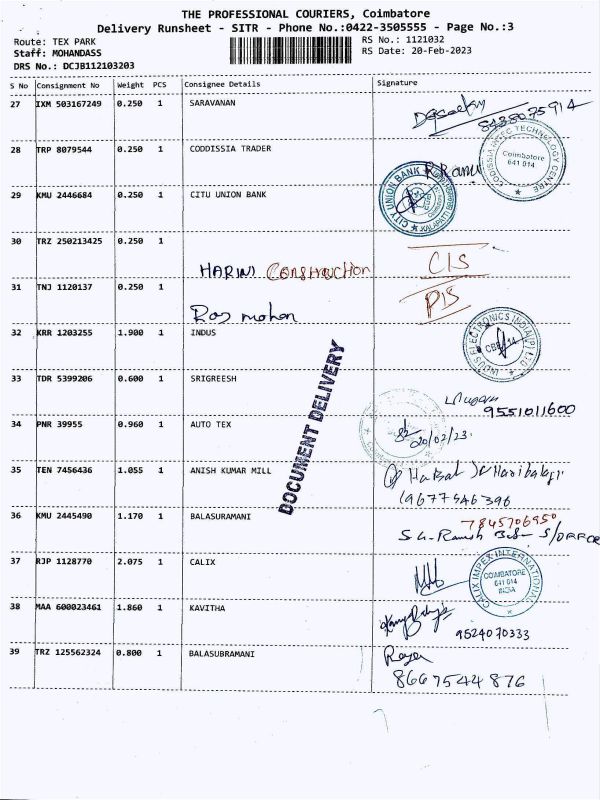 THE PROFESSIONAL COURIERS, Coimbatore
Delivery Runsheet - SITR - Phone No.:0422-3505555 - Page No.:3
Route: TEX PARK
RS No.: 1121032
Staff: MOHANDASS
RS Date: 20-Feb-2023
DRS No.: DCJB112103203
S No Consignment No Weight PCS Consignee Details Signature
27 IXM 503167249 0.250 1 SARAVANAN
28 TRP 8079544 0.250 1 CODDISSIA TRADER
CODISSIA INTEC TECHNOLOGY CENTRE
Coimbatore
641 014
29 KMU 2446684 0.250 1 CITU UNION BANK
CITY UNION BANK
30 TRZ 250213425 0.250 1
HARINI CONSTRUCTION CIS
31 TNJ 1120137 0.250 1 PIS
Raj mohan
32 KRR 1203255 1.900 1 INDUS
INDUS ELECTRONICS INDIA (P) LTD
CBE-14
33 TDR 5399206 0.600 1 SRIGREESH
9551011600
34 PNR 39955 0.960 1 AUTO TEX
20/02/23
DOCUMENT DELIVERY
35 TEN 7456436 1.055 1 ANISH KUMAR MILL
9677546396
36 KMU 2445490 1.170 1 BALASURAMANI
7845706950
37 RJP 1128770 2.075 1 CALIX
CALIX IMPEX INTERNATIONAL
COIMBATORE
641 014
INDIA
38 MAA 600023461 1.860 1 KAVITHA
9524070333
39 TRZ 125562324 0.800 1 BALASUBRAMANI
8667544876